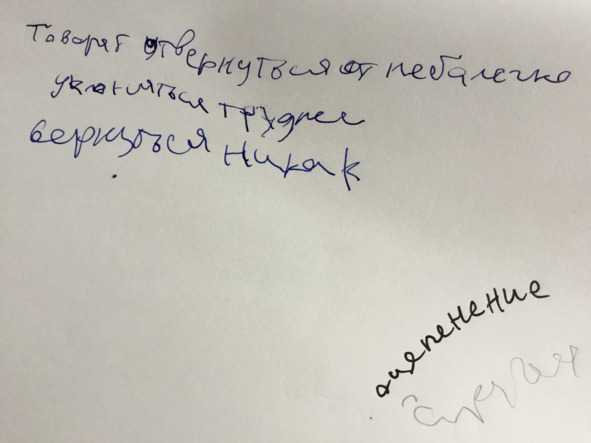 Говорят отвернуться от неба легко
уклоняться труднее
вернуться никак
оцепенение